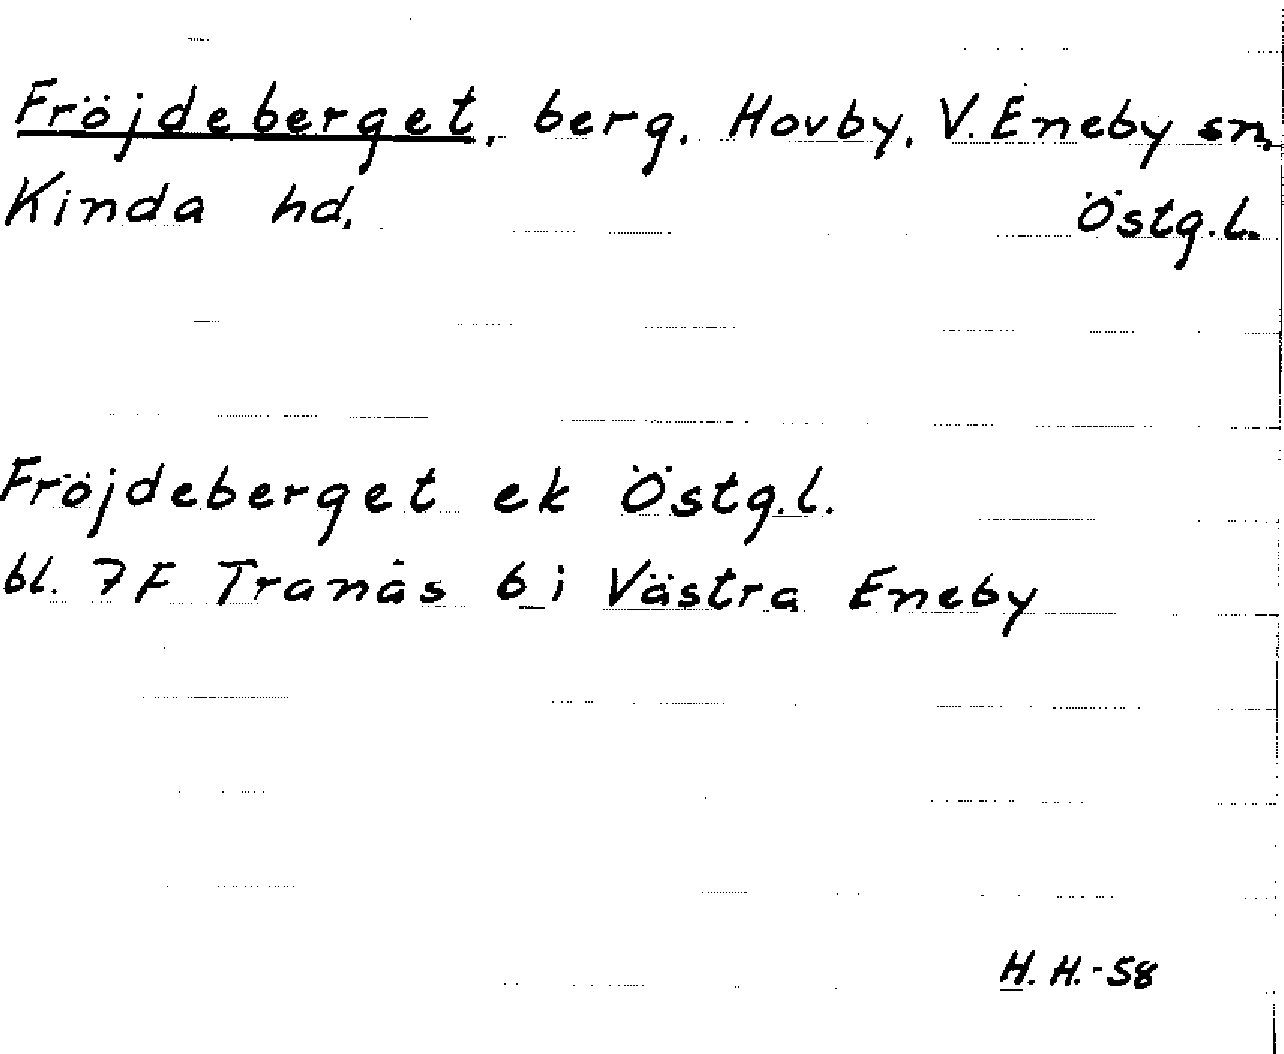 Fröjdeberget, berg, Hovby, V. Eneby sn,
Kinda hd. Östg.l.
Fröjdeberget ek Östg.l.
bl. 7F Tranås 6 i Västra Eneby
H. H. -58